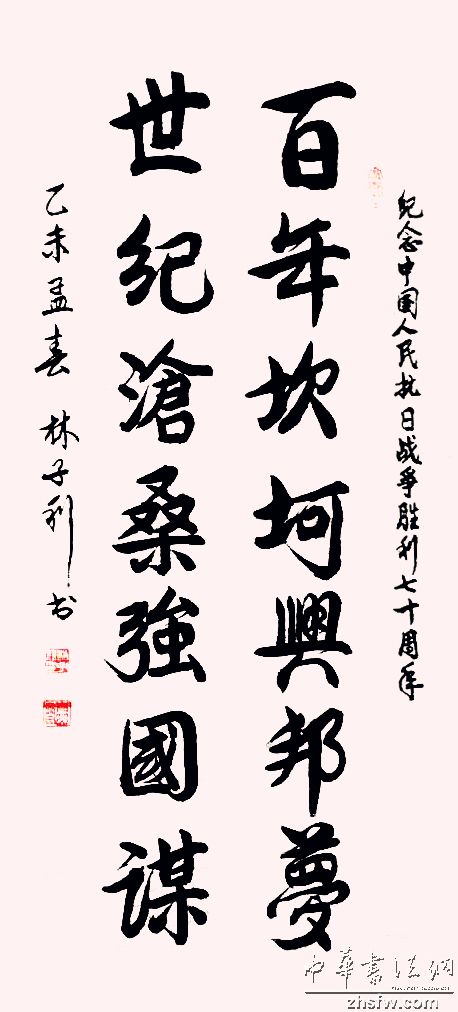 纪念中国人民抗日战争胜利七十周年
百年坎坷興邦夢
世紀滄桑強國謀
乙未孟春 林子利书
中华书法网
zhsfw.com